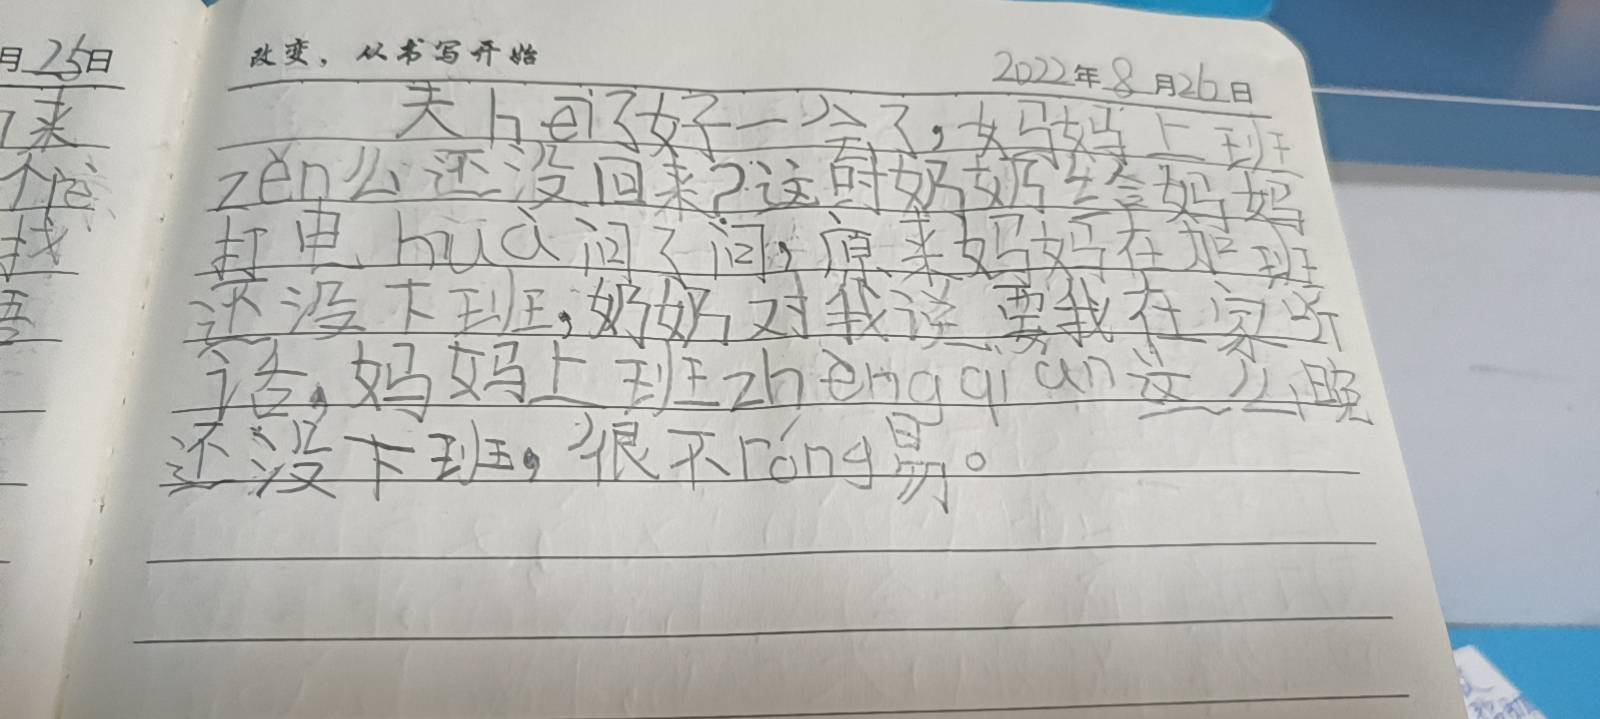 月25日
来
个
找
改变，从书写开始
2022年8月26日
天hēi了好一会了，妈妈上班
zěn么还没回来？这时奶奶给妈妈
打电huà问了问，原来妈妈在加班
还没下班，奶奶对我说要我在家听
话，妈妈上班zhèngqián这么晚
还没下班，很不róng易。